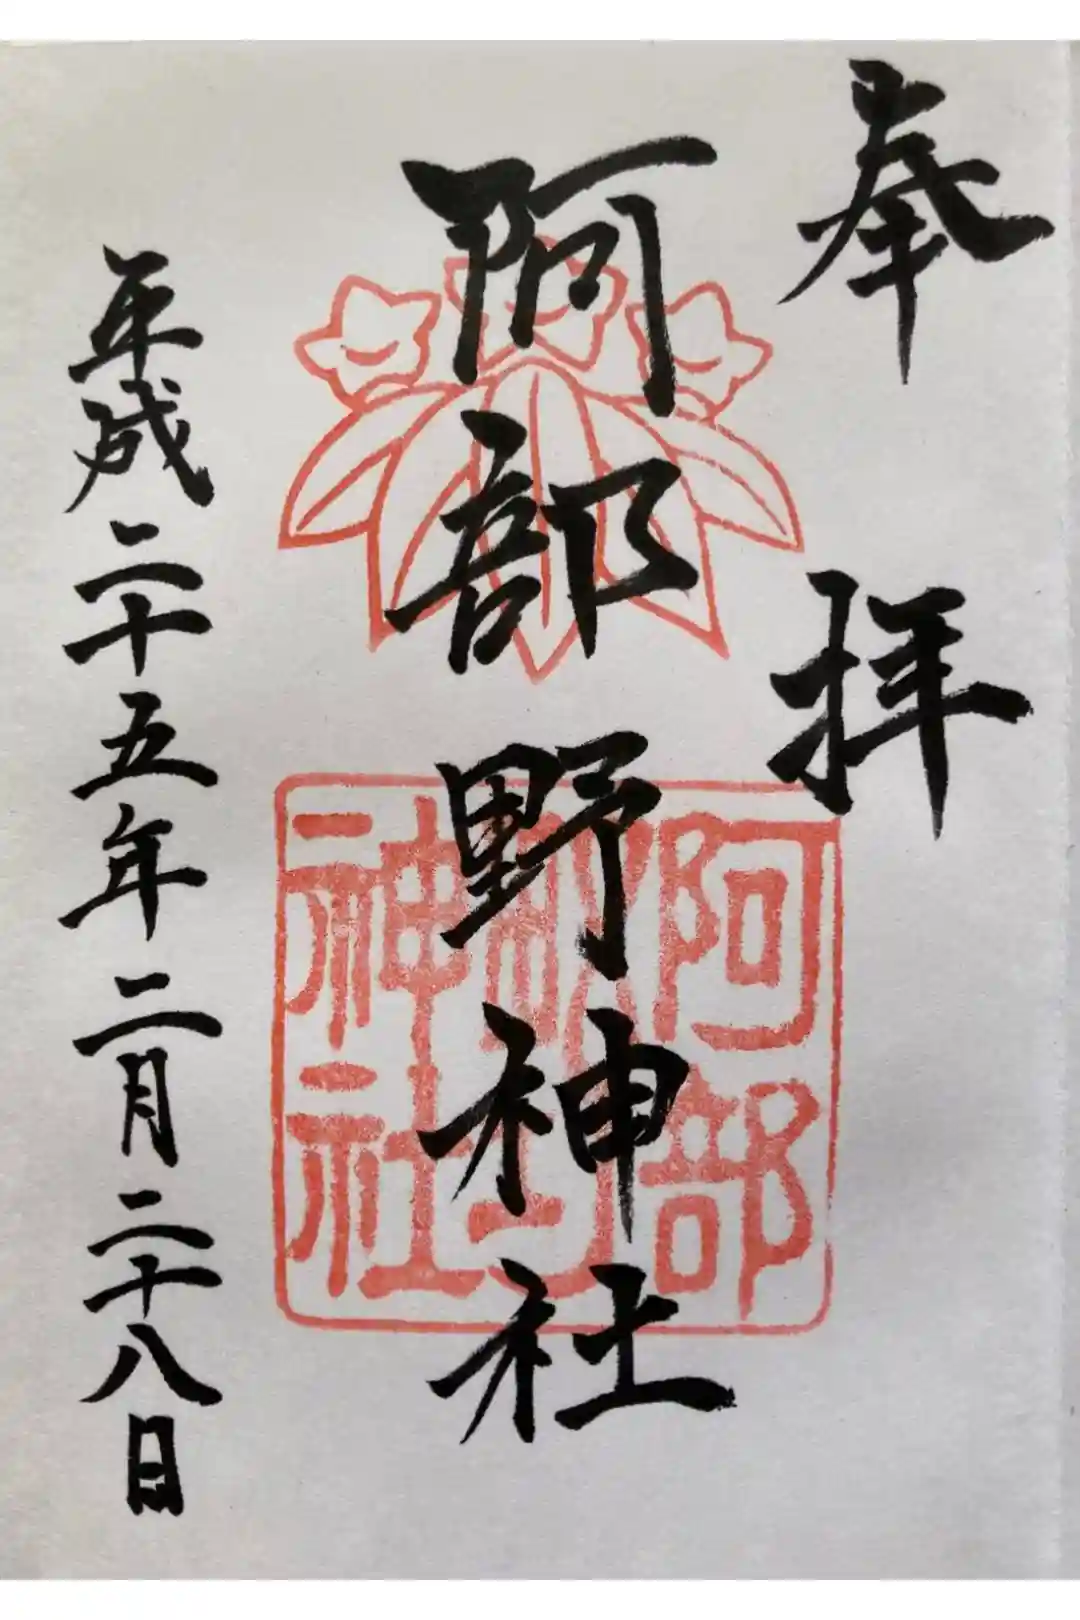 奉拝
阿部野神社
平成二十五年二月二十八日
阿部野神社